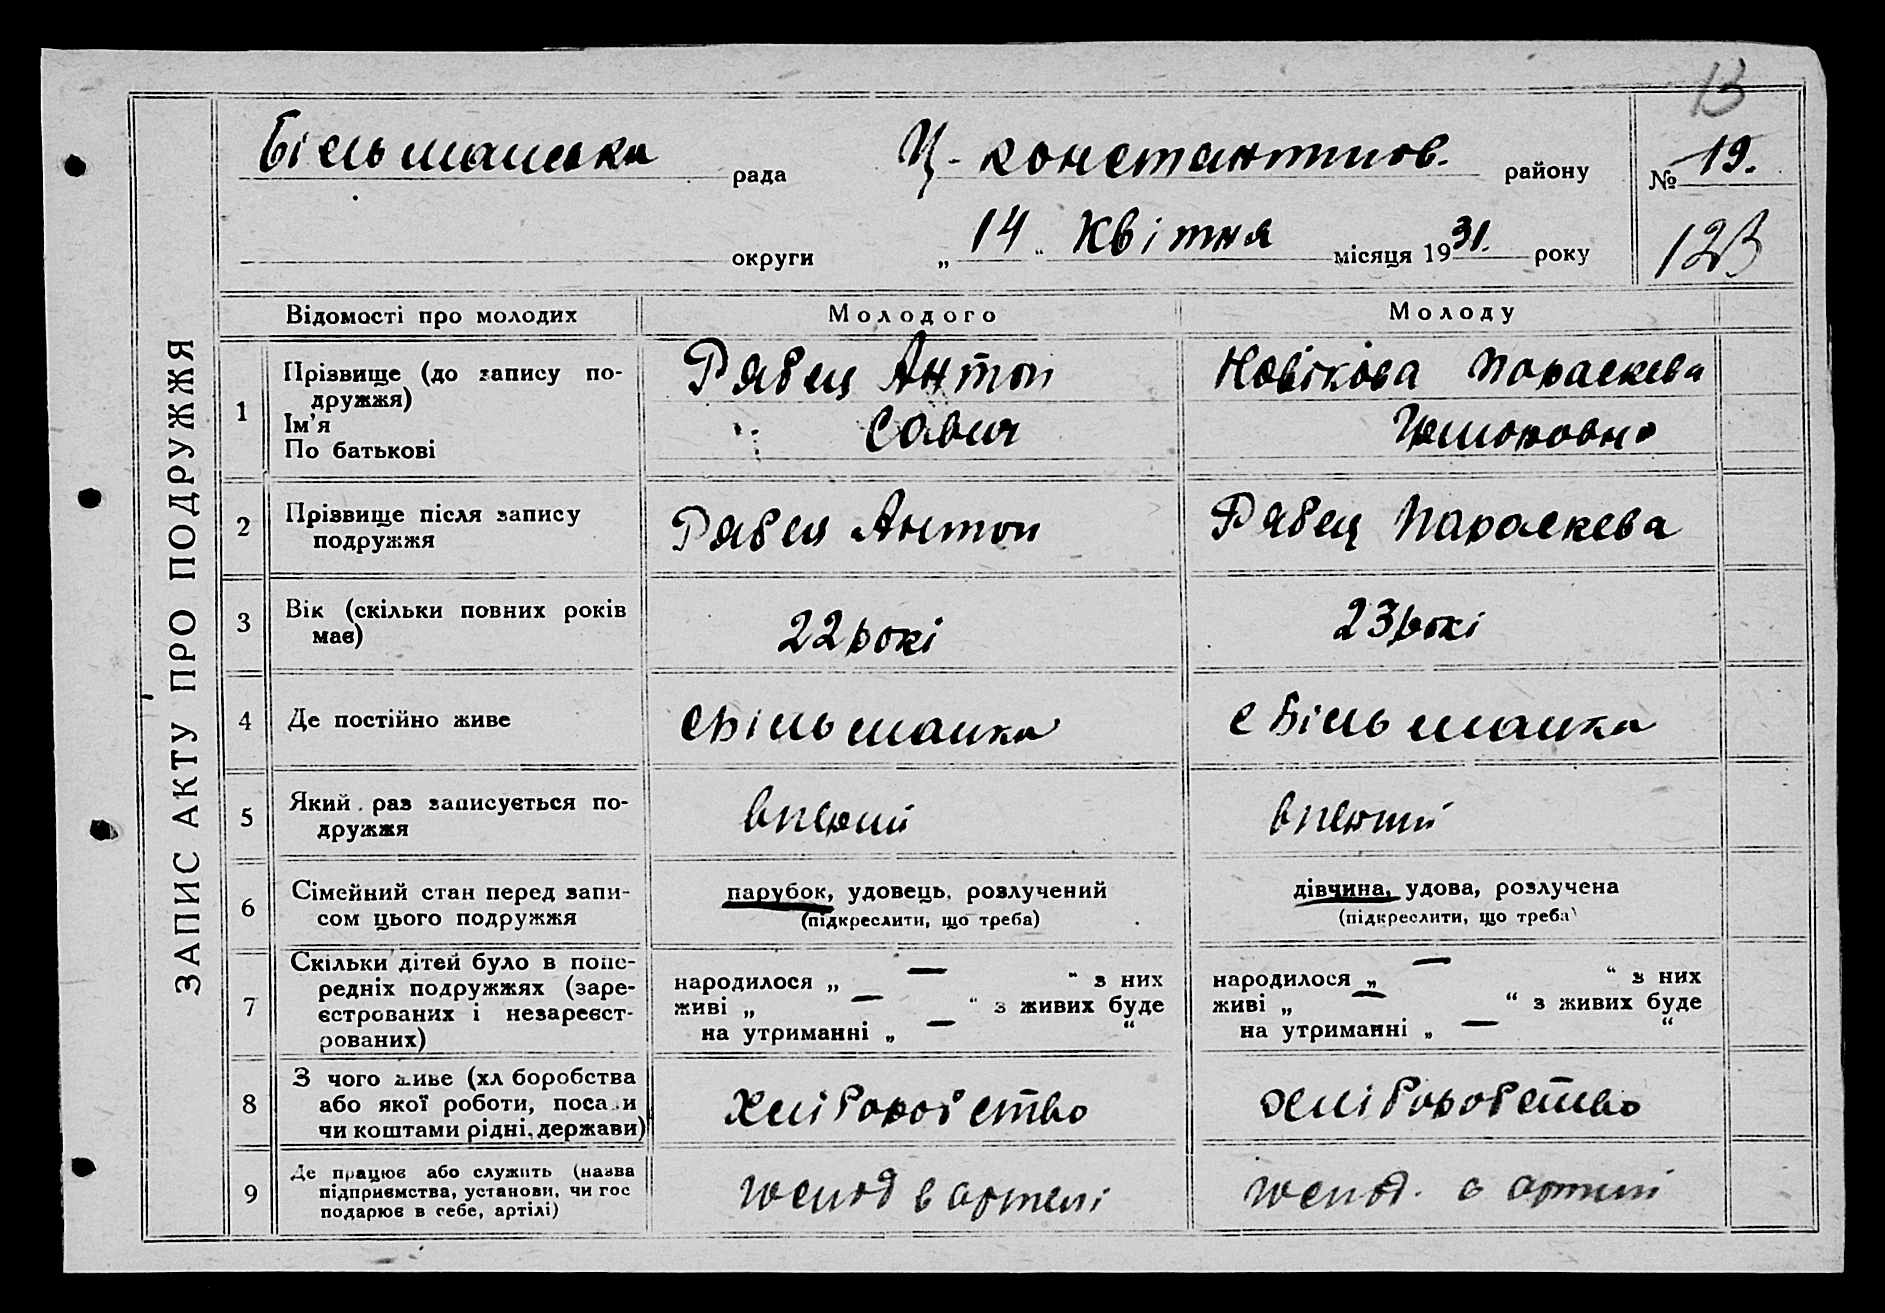 13
Більшанська рада Ц-константинов. району № 19.
округи „ 14 " Квітня місяця 1931. року 123
ЗАПИС АКТУ ПРО ПОДРУЖЖЯ
Відомості про молодих Молодого Молоду
1 Прізвище (до запису по-
дружжя)
Ім'я
По батькові
Рябец Антон
Савич
Новікова Параскева
2 Прізвище після запису
подружжя
Рябец Антон
Рябец Параскева
3 Вік (скільки повних років
має)
22 рокі
23 рокі
4 Де постійно живе
с Більшанка
с Більшанка
5 Який раз записується по-
дружжя
вперший
вперший
6 Сімейний стан перед запи-
сом цього подружжя
парубок, удовець, розлучений
(підкреслити, що треба)
дівчина, удова, розлучена
(підкреслити, що треба)
7 Скільки дітей було в попе-
редніх подружжях (заре-
єстрованих і незареєст-
рованих)
народилося „ — " з них
живі „ — " з живих буде
на утриманні „ — "
народилося „ — " з них
живі „ — " з живих буде
на утриманні „ — "
8 З чого живе (хліборобства
або якої роботи, посади
чи коштами рідні, держави)
Хліборобство
хліборобство
9 Де працює або служить (назва
підприємства, установи, чи гос
подарює в себе, артілі)
господ в артелі
господ. в артелі